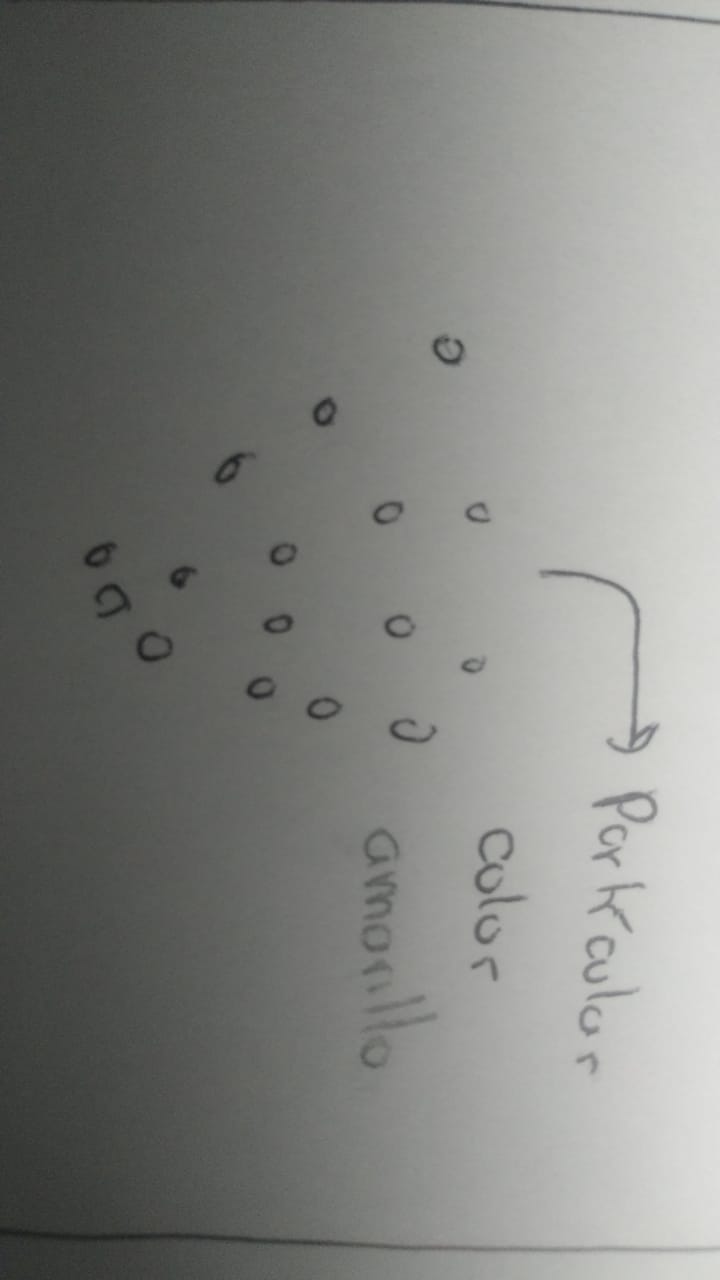 Particular
color
amarillo